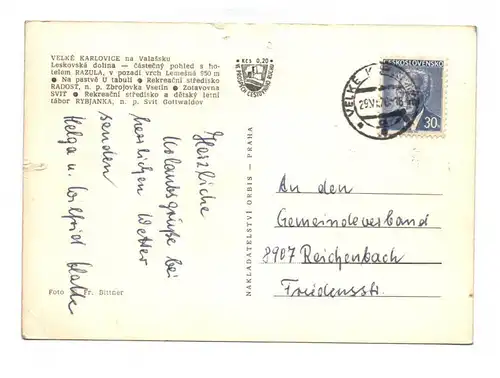 VELKÉ KARLOVICE na Valašsku
Leskovská dolina — částečný pohled s ho-
telem RAZULA, v pozadí vrch Lemešná 950 m
● Na pastvě U tabulí ● Rekreační středisko
RADOST, n. p. Zbrojovka Vsetín ● Zotavovna
SVIT ● Rekreační středisko a dětský letní
tábor RYBJANKA, n. p. Svit Gottwaldov
Kčs 0,20
ČESKOSLOVENSKO
30
VELKÉ
Herzliche
Urlaubsgrüße bei
herrlichen Wetter
senden
Helga u. Wilfrid
Foto Fr. Dittner
NAKLADATELSTVÍ ORBIS — PRAHA
An den
Gemeindeverband
8907 Reichenbach
Friedensstr.